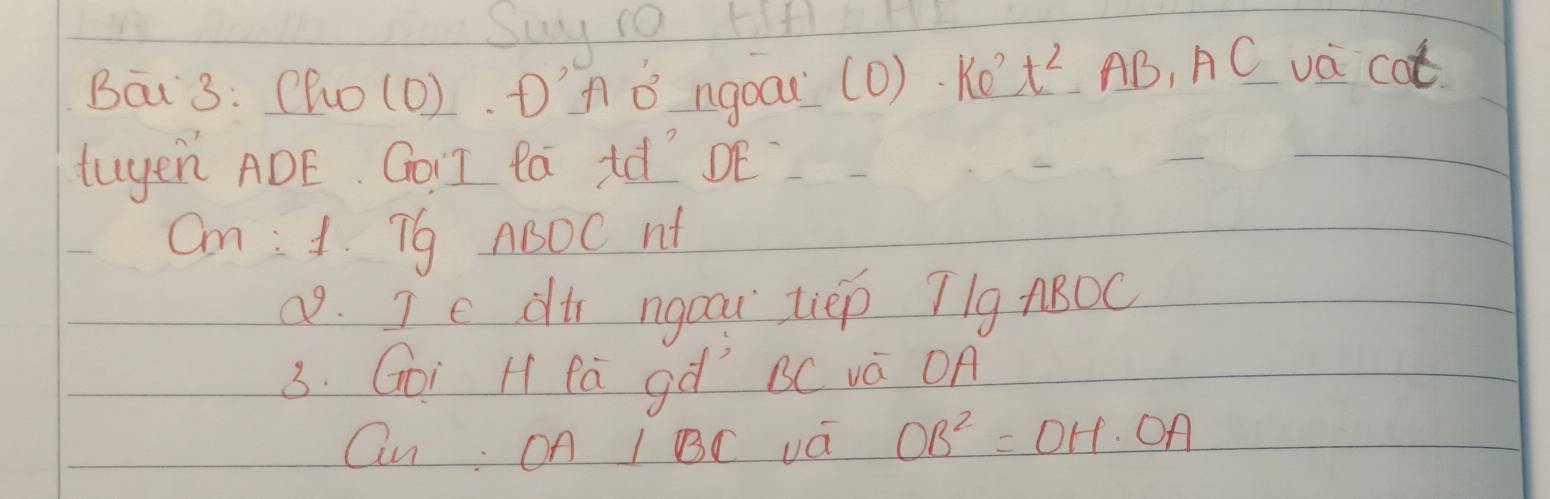 Suy ra HA HE
Bài 3: Cho (O). Đ' A ở ngoài (O). Kẻ t² AB, AC và cát
tuyến ADE. Gọi I là tđ' DE
Cm: 1. T/g ABOC nt
2. I ∈ đtr ngoại tiếp T/g ABOC
3. Gọi H là gđ' BC và OA
Cm: OA ⊥ BC và OB² = OH.OA